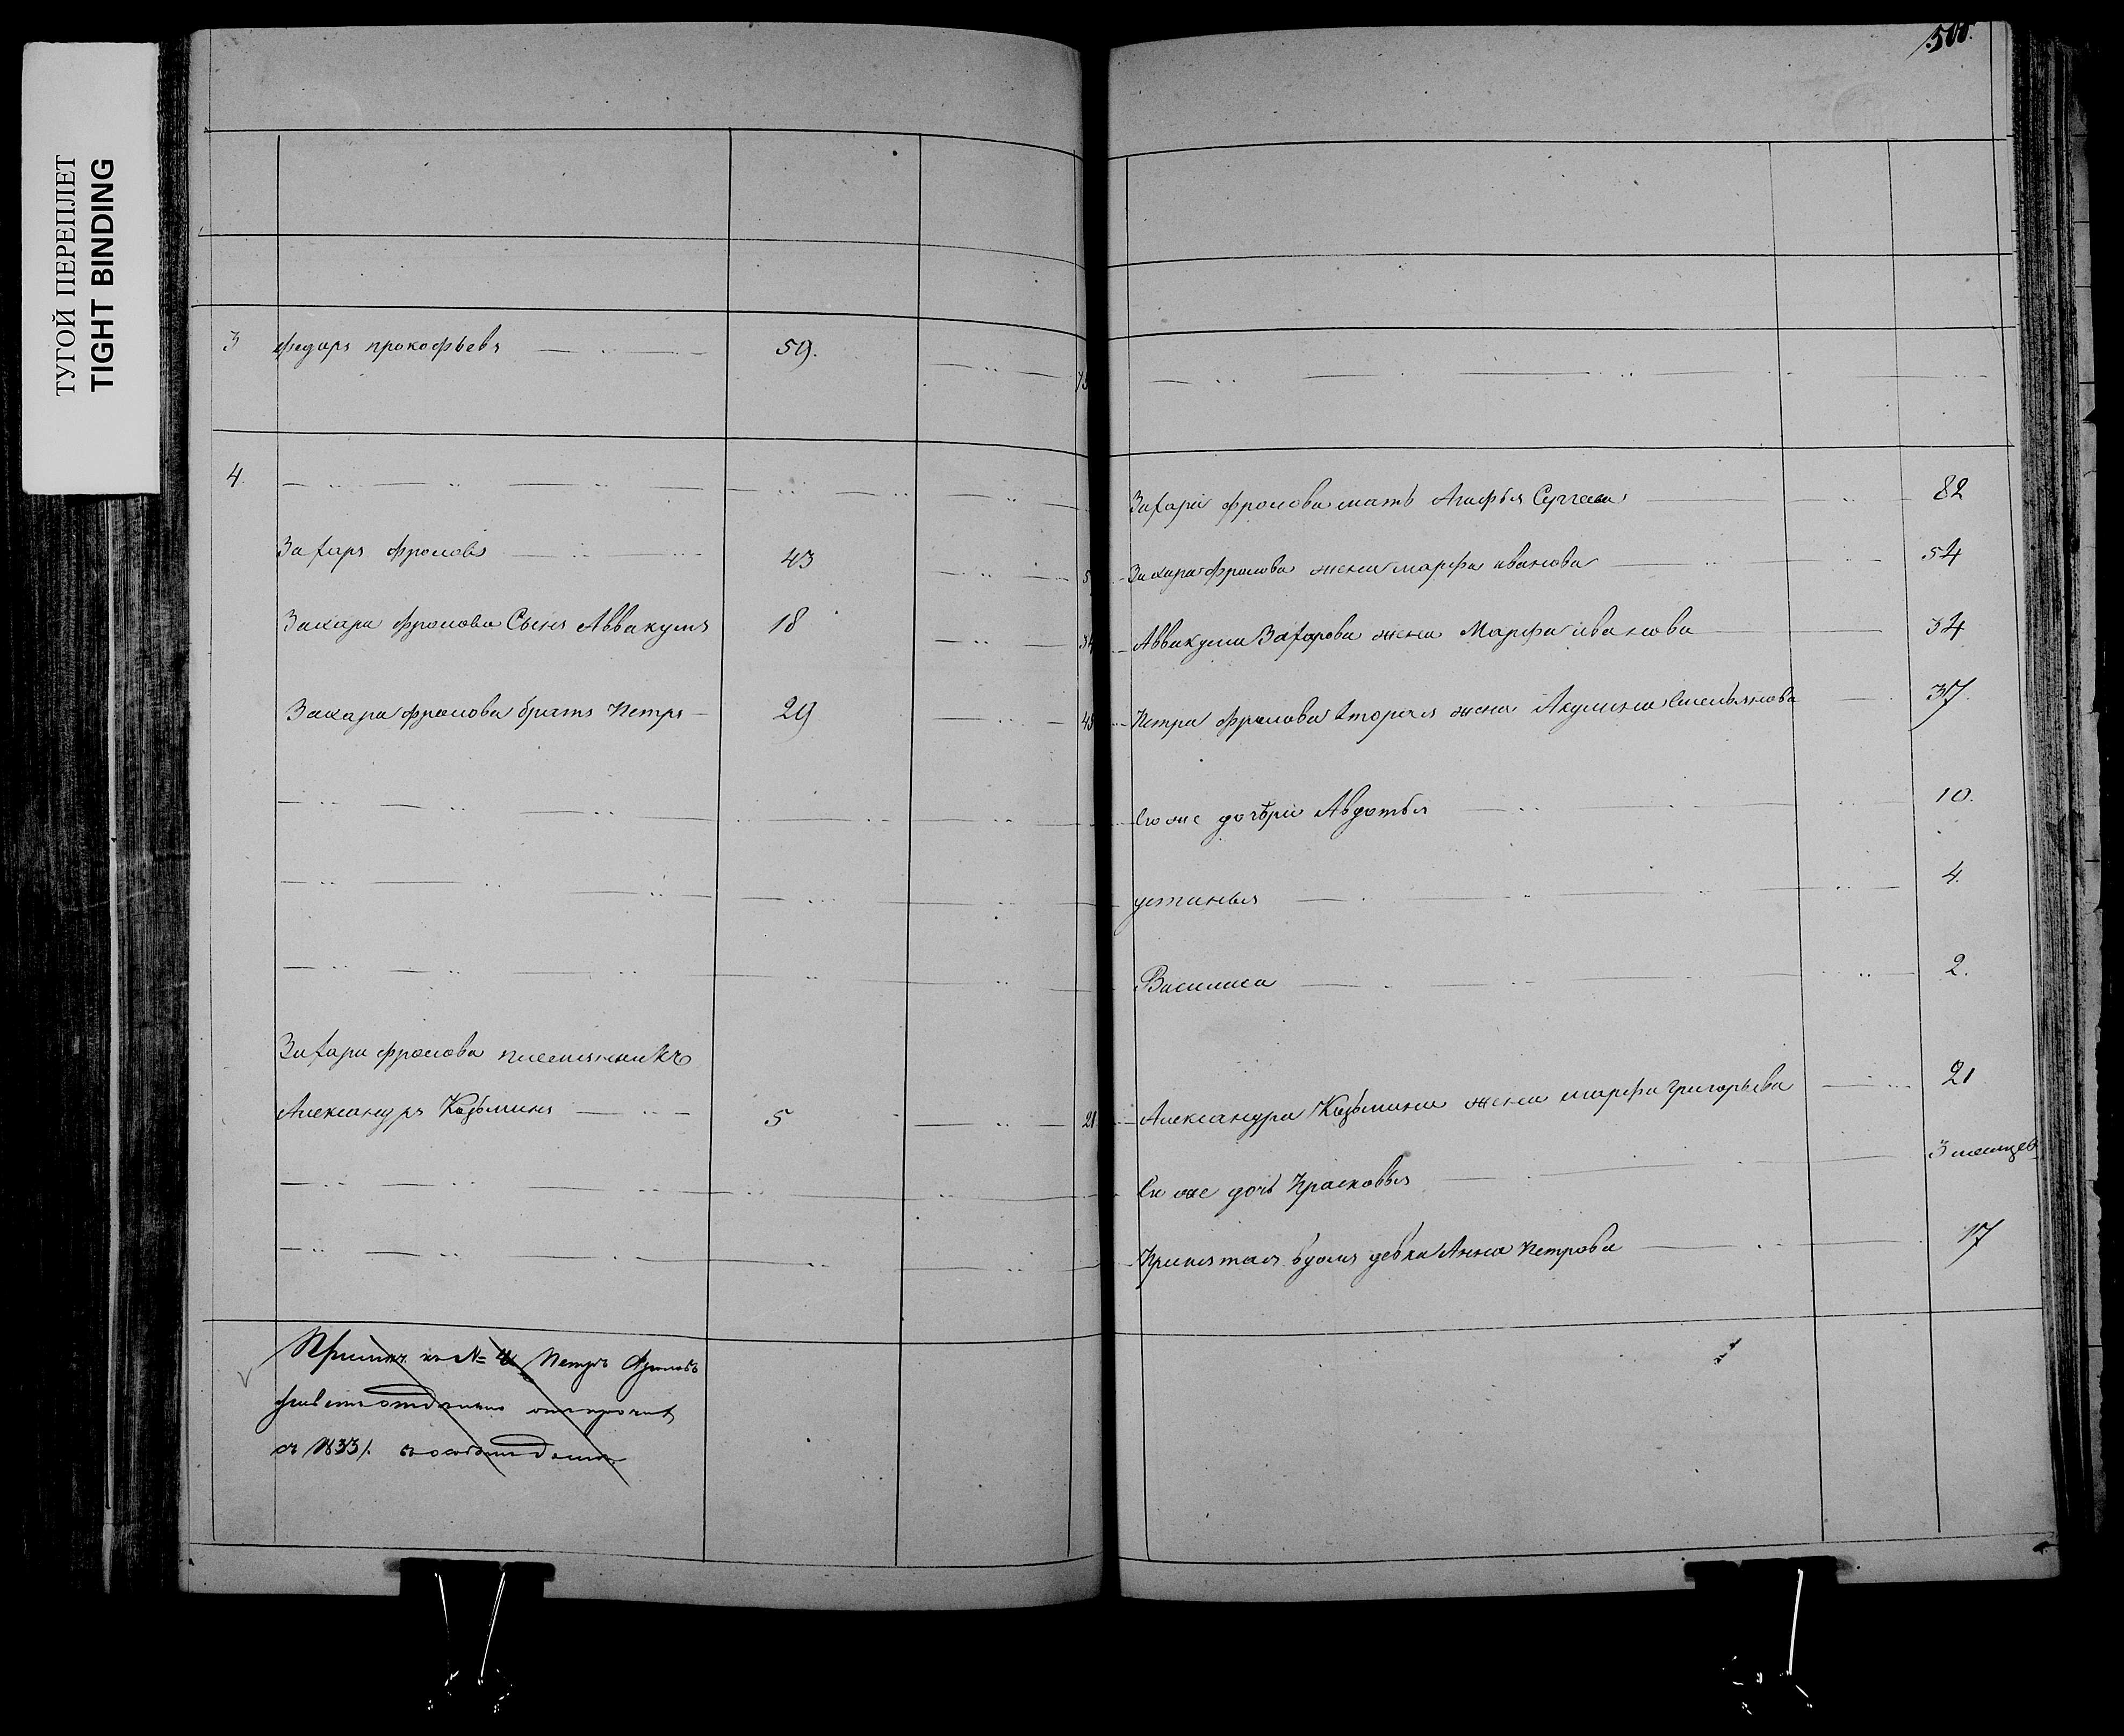 ТУГОЙ ПЕРЕПЛЕТ
TIGHT BINDING
3 Федоръ прокофьевъ 59.
4.
Захаръ Фроловъ 43
Захара Фролова Сынъ Аввакумъ 18
Захара Фролова братъ Петръ 29
Захара Фролова племянникъ
Александръ Козьминъ 5 21
къ № 4 Петръ Фроловъ
съ 1833 г.
Захара Фролова мать Агафья Сергеева 82
Захара Фролова жена марфа иванова 54
Аввакума Захарова жена Марфа иванова 34
Петра Фролова вторая жена Акулина Емельянова 37.
Ево же дочери Авдотья 10.
устинья 4.
Василиса 2.
Александра Козьмина жена марфа григорьева 21
Ево же дочь Прасковья 3 месяцев
Принятая вдомъ девка Анна Петрова 17